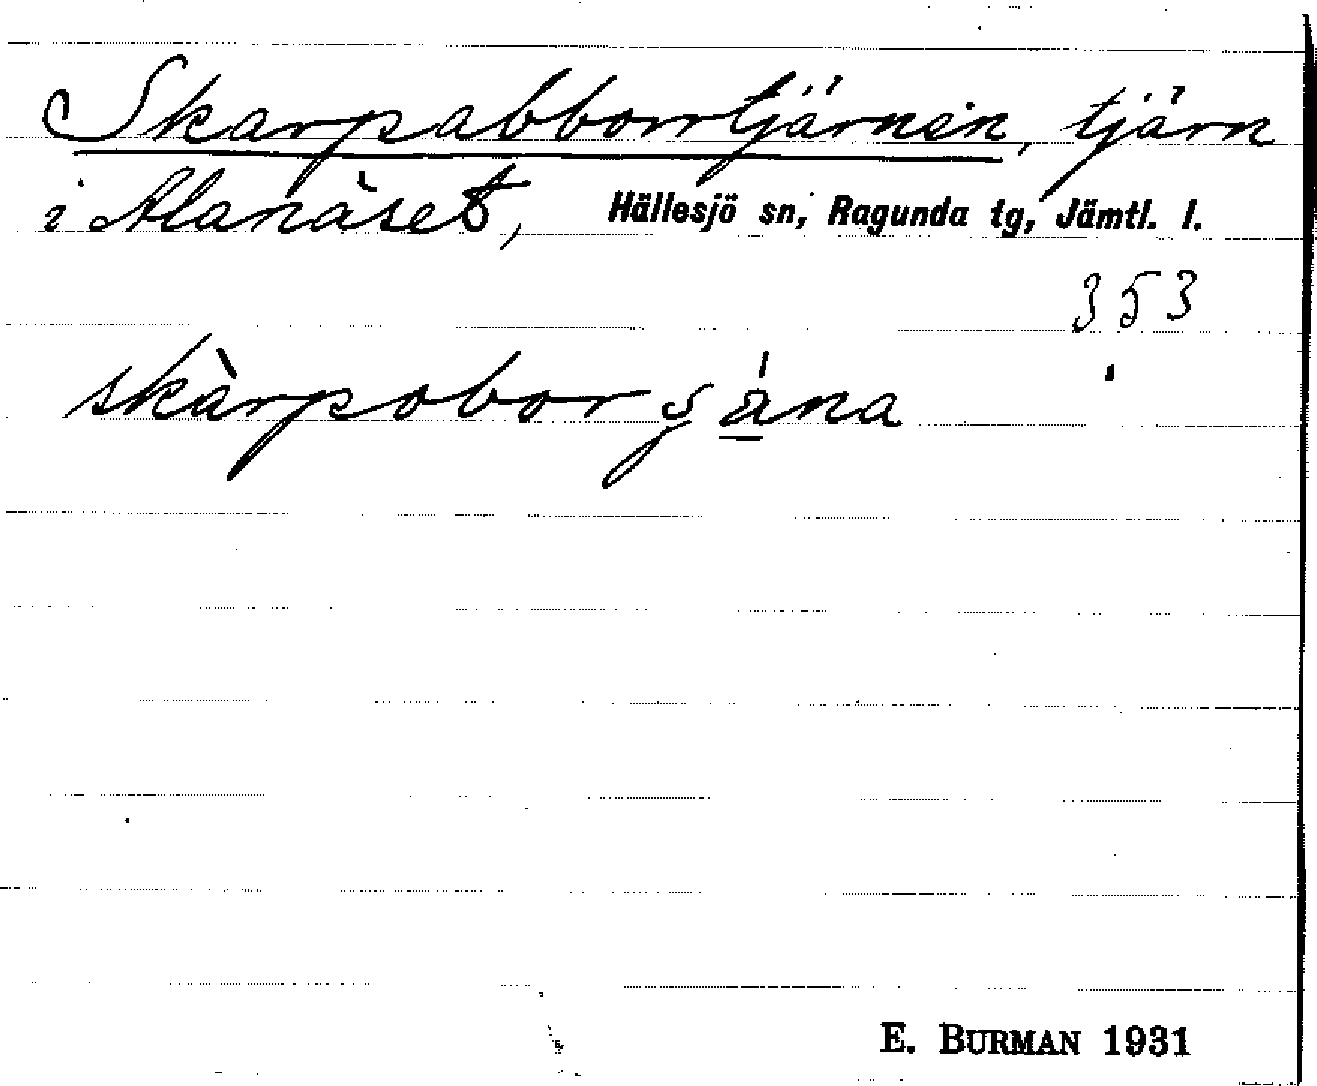 Skarpabborrtjärnen, tjärn
i Alanäset, Hällesjö sn, Ragunda tg, Jämtl. l.
353
E. BURMAN 1931